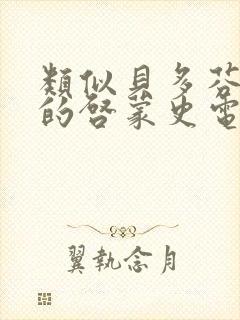 類似貝多芬
的啓蒙史電
翼執念月